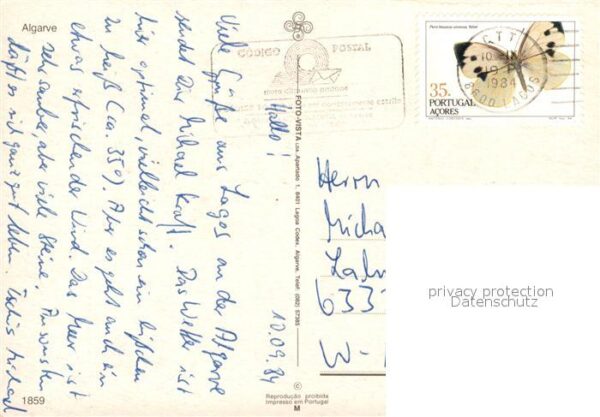 Algarve
Hallo!
Viele Grüße aus Lagos an der Algarve
sendet Dir Michael Kraft. Das Wetter ist
hier optimal, vielleicht schon ein bißchen
zu heiß (ca. 35°). Aber es geht auch ein
etwas erfrischender Wind. Das Meer ist
sehr sauber, aber viele Steine. Ansonsten
läßt es sich ganz gut leben. Tschüs Michael
10.09.84
1859
CÓDIGO POSTAL
FOTO-VISTA Lda. Apartado 1, 8401 Lagoa Codex, Algarve. Telef. (082) 57385
©
Reprodução proibida
Impresso em Portugal
M
CTT
1984
8600 LAGOS
35.
PORTUGAL
AÇORES
Herrn
Micha
633
W-
privacy protection
Datenschutz